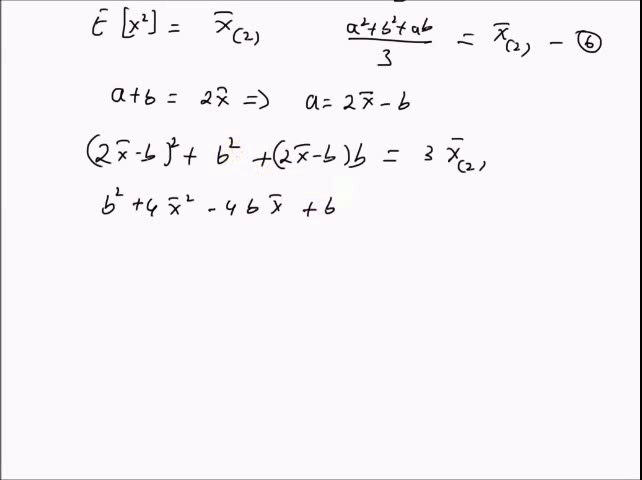 E [x²] = x̄₍₂₎ (a²+b²+ab)/3 = x̄₍₂₎ - ⑥
a+b = 2x̄ => a = 2x̄ - b
(2x̄-b)² + b² + (2x̄-b)b = 3 x̄₍₂₎
b² + 4x̄² - 4bx̄ + b